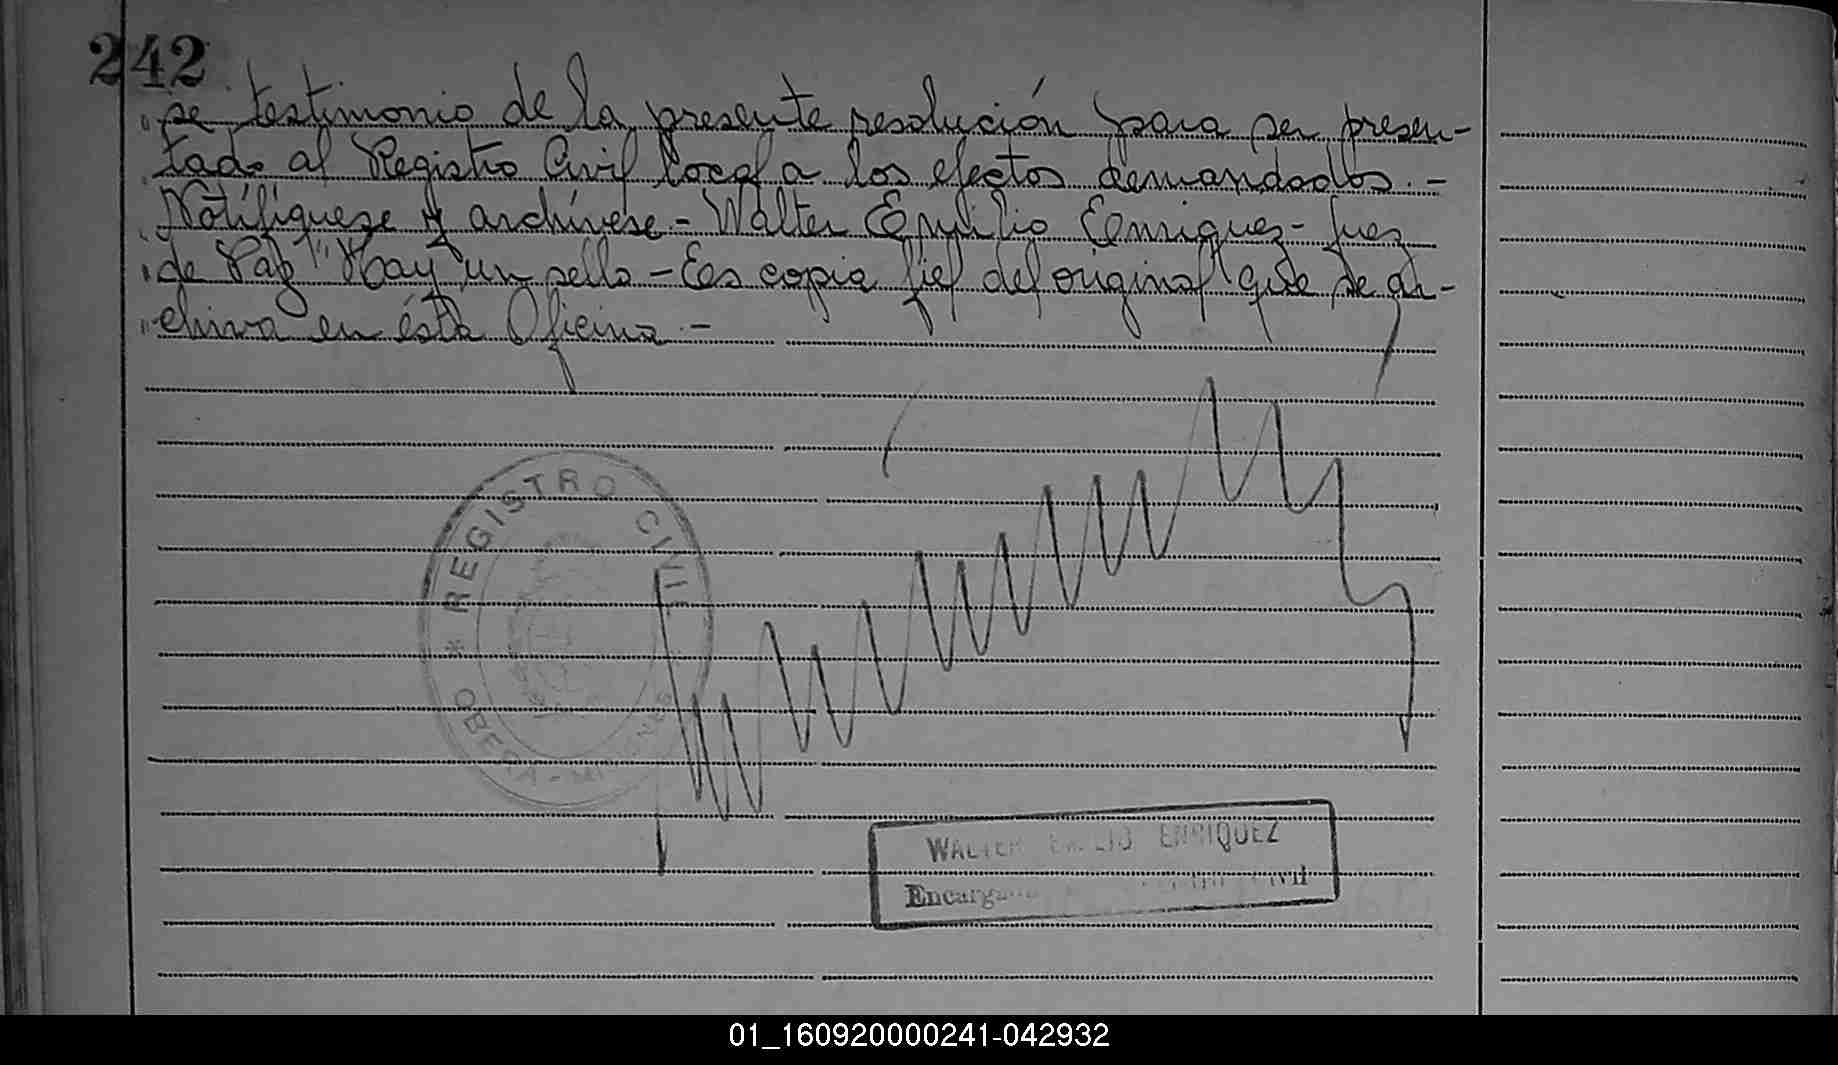 242
se testimonio de la presente resolución para ser presen-
tado al Registro Civil local a los efectos demandados.-
Notifíquese y archívese - Walter Emilio Enriquez - Juez
de Paz" Hay un sello - Es copia fiel del original que se ar-
chiva en ésta Oficina.-
* REGISTRO CIVIL
OBERA - MISIONES
WALTER EMILIO ENRIQUEZ
Civil
01_160920000241-042932